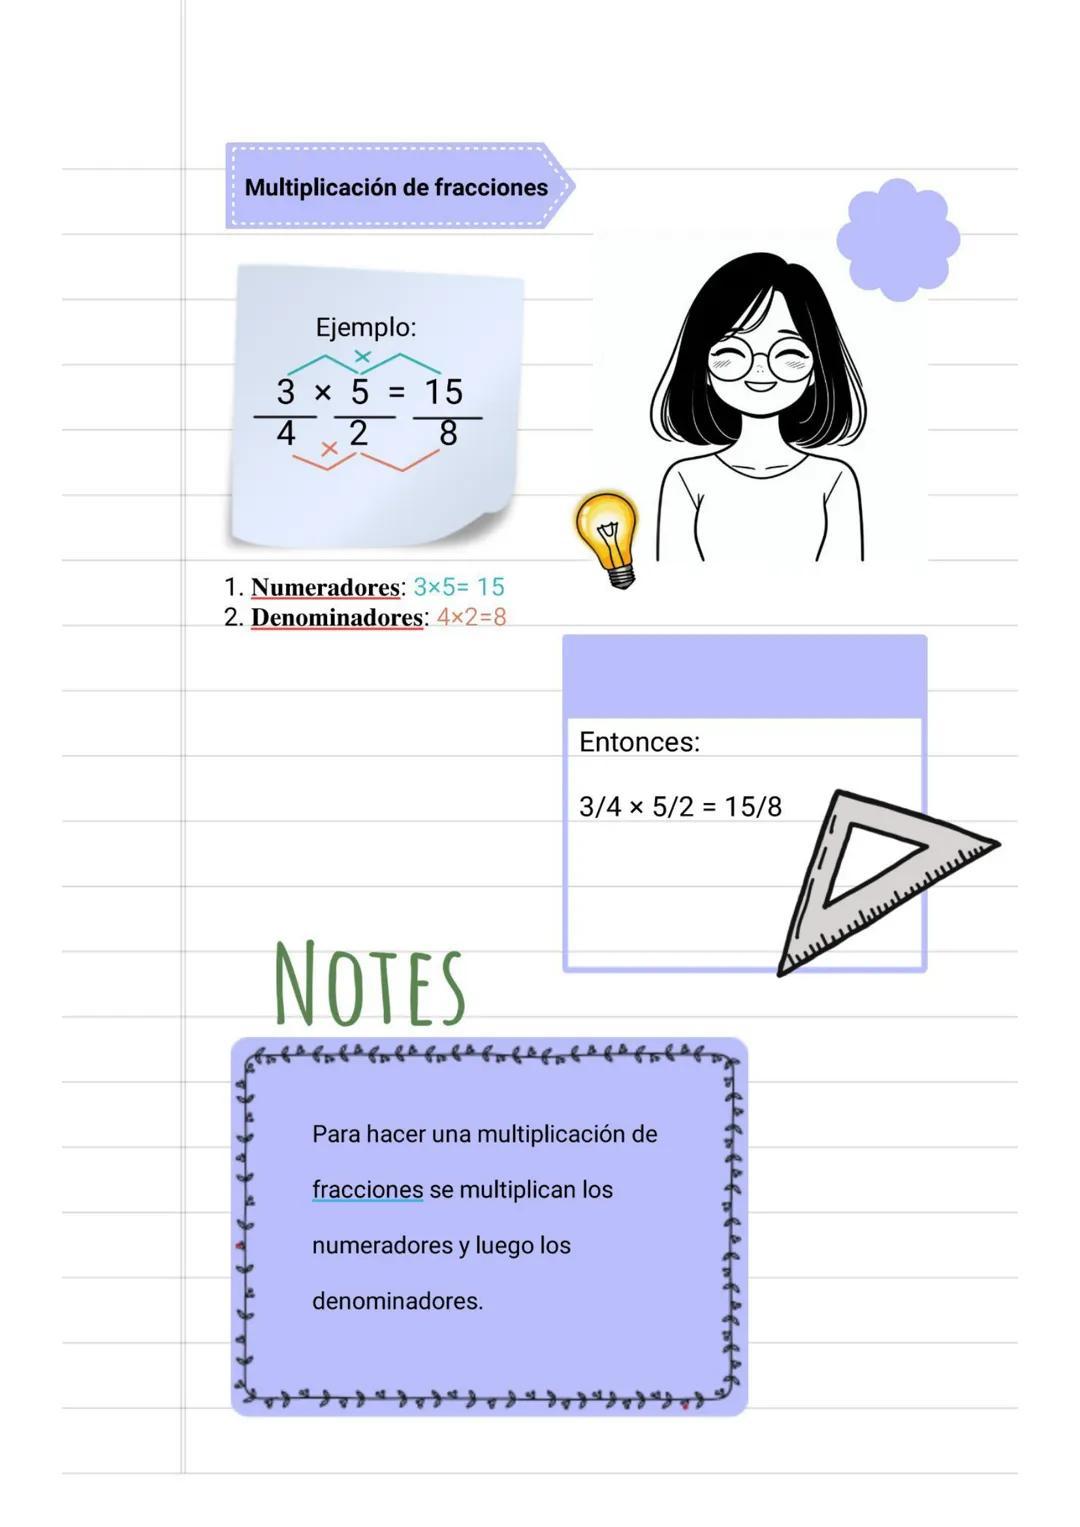 Multiplicación de fracciones
Ejemplo:
×
3 × 5 = 15
4 2 8
×
1. Numeradores: 3×5= 15
2. Denominadores: 4×2=8
Entonces:
3/4 × 5/2 = 15/8
NOTES
Para hacer una multiplicación de
fracciones se multiplican los
numeradores y luego los
denominadores.